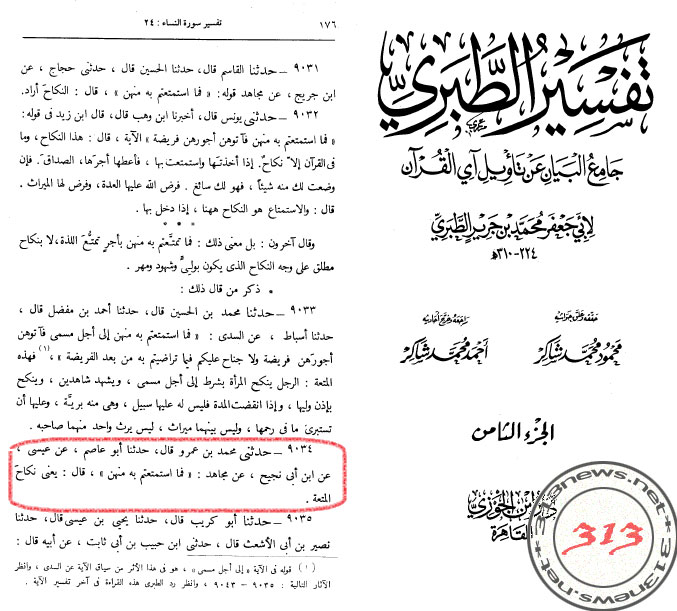 تفسير سورة النساء : ٢٤
١٧٦
٩٠٣١ – حدثنا القاسم قال، حدثنا الحسين قال ، حدثنى حجاج ، عن
ابن جريج، عن مجاهد قوله: « فما استمتعتم به منهن » ، قال : النكاح أراد.
٩٠٣٢ – حدثنى يونس قال، أخبرنا ابن وهب قال، قال ابن زيد فى قوله:
« فما استمتعتم به منهن فآتوهن أجورهن فريضة » الآية ، قال : هذا النكاح، وما
فى القرآن إلاّ نكاحٌ. إذا أخذتَها واستمتعت بها، فأعطها أجرَها، الصداقَ. فإن
وضعت لك منه شيئاً، فهو لك سائغ . فرض الله عليها العدة، وفرض لها الميراث .
قال : والاستمتاع هو النكاح ههنا ، إذا دخل بها .
* * *
وقال آخرون : بل معنى ذلك : فما تمتَّعتم به منهن بأجرٍ تمتُّعَ اللذة،لا بنكاح
مطلق على وجه النكاح الذى يكون بولىٍّ وشهود ومهر .
• ذكر من قال ذلك :
٩٠٣٣ – حدثنا محمد بن الحسين قال، حدثنا أحمد بن مفضل قال ،
حدثنا أسباط ، عن السدى : « فما استمتعتم به منهن إلى أجل مسمى فآتوهن
أجورَهن فريضة ولا جناح عليكم فيما تراضيتم به من بعد الفريضة »، (١) فهذه
المتعة : الرجل ينكح المرأة بشرط إلى أجل مسمى ، ويشهد شاهدين ، وينكح
بإذن وليها ، وإذا انقضت المدة فليس له عليها سبيل ، وهى منه بريَّة ، وعليها أن
تستبرئ ما فى رحمها، وليس بينهما ميراث ، ليس يرث واحد منهما صاحبه .
٩٠٣٤ – حدثنى محمد بن عمرو قال، حدثنا أبو عاصم ، عن عيسى ،
عن ابن أبى نجيح ، عن مجاهد : « فما استمتعتم به منهن » ، قال : يعنى نكاحَ
المتعة .
٩٠٣٥ – حدثنا أبو كريب قال، حدثنا يحيى بن عيسى قال، حدثنا
نصير بن أبى الأشعث قال ، حدثنى ابن حبيب بن أبى ثابت ، عن أبيه قال :
( ١ ) قوله فى الآية « إلى أجل مسمى » ، هو فى هذا الأثر من سياق الآية عن السدى ، وانظر
الآثار التالية : ٩٠٣٥ – ٩٠٤٣ ، وانظر رد الطبرى هذه القراءة فى آخر تفسير الآية .
تفسير الطبري
جامع البيان عن تأويل آي القرآن
لأبي جعفر محمد بن جرير الطبري
٢٢٤-٣١٠هـ
حققه وعلق حواشيه
محمود محمد شاكر
راجعه وخرج أحاديثه
أحمد محمد شاكر
الجزء الثامن
دار ابن الجوزي
القاهرة
313news.net
313
313news.net